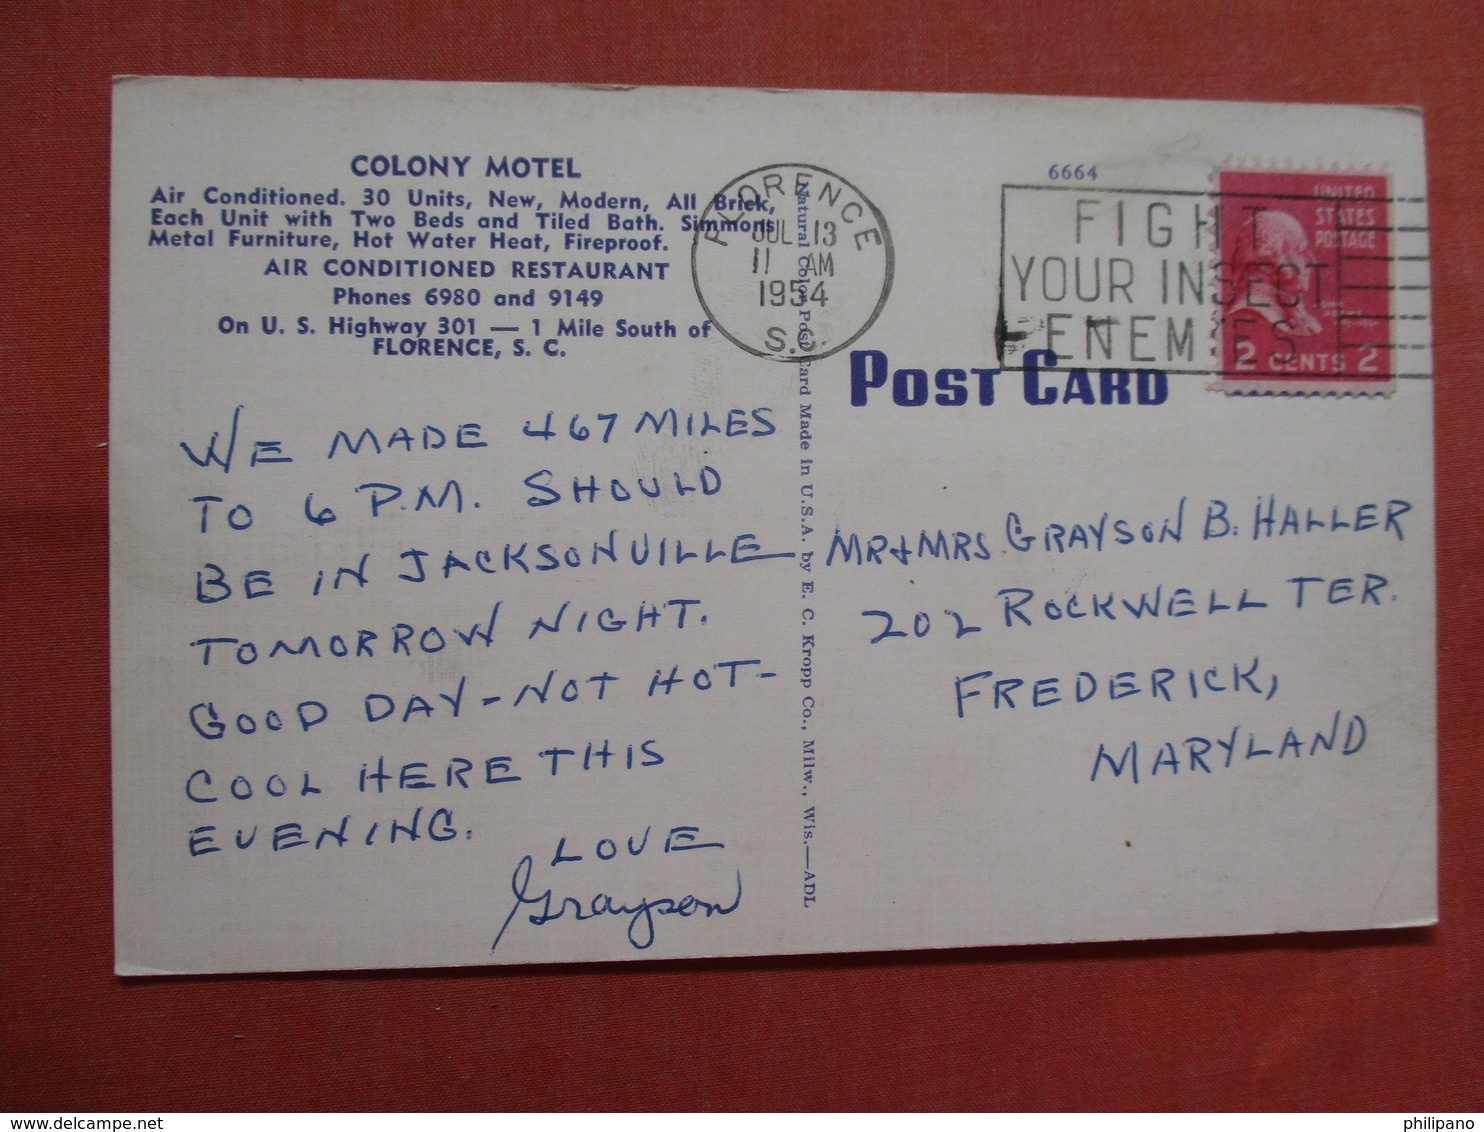 COLONY MOTEL
Air Conditioned. 30 Units, New, Modern, All Brick,
Each Unit with Two Beds and Tiled Bath. Simmons
Metal Furniture, Hot Water Heat, Fireproof.
AIR CONDITIONED RESTAURANT
Phones 6980 and 9149
On U. S. Highway 301 — 1 Mile South of
FLORENCE, S. C.
WE MADE 467 MILES
TO 6 P.M. SHOULD
BE IN JACKSONVILLE
TOMORROW NIGHT.
GOOD DAY - NOT HOT -
COOL HERE THIS
EVENING.
LOVE
Grayson
Natural Color Post Card Made in U.S.A. by E. C. Kropp Co., Milw., Wis.—ADL
FLORENCE
JUL 13
11 AM
1954
S.C.
6664
FIGHT
YOUR INSECT
ENEMIES
UNITED
STATES
POSTAGE
2 CENTS 2
POST CARD
MR & MRS. GRAYSON B. HALLER
202 ROCKWELL TER.
FREDERICK,
MARYLAND
http://www.delcampe.net
philipano